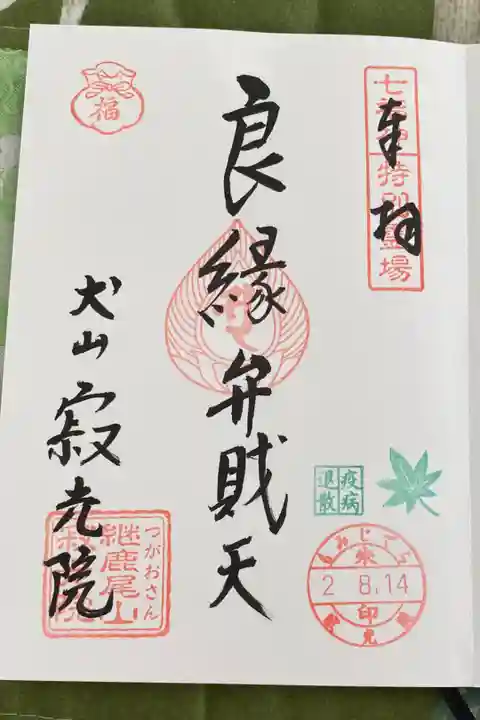 七福神特別霊場
奉拝
良縁弁財天
犬山
寂光院
福
つがおさん
継鹿尾山
寂光院
疫病
退散
もみじでら
2 8.14
印